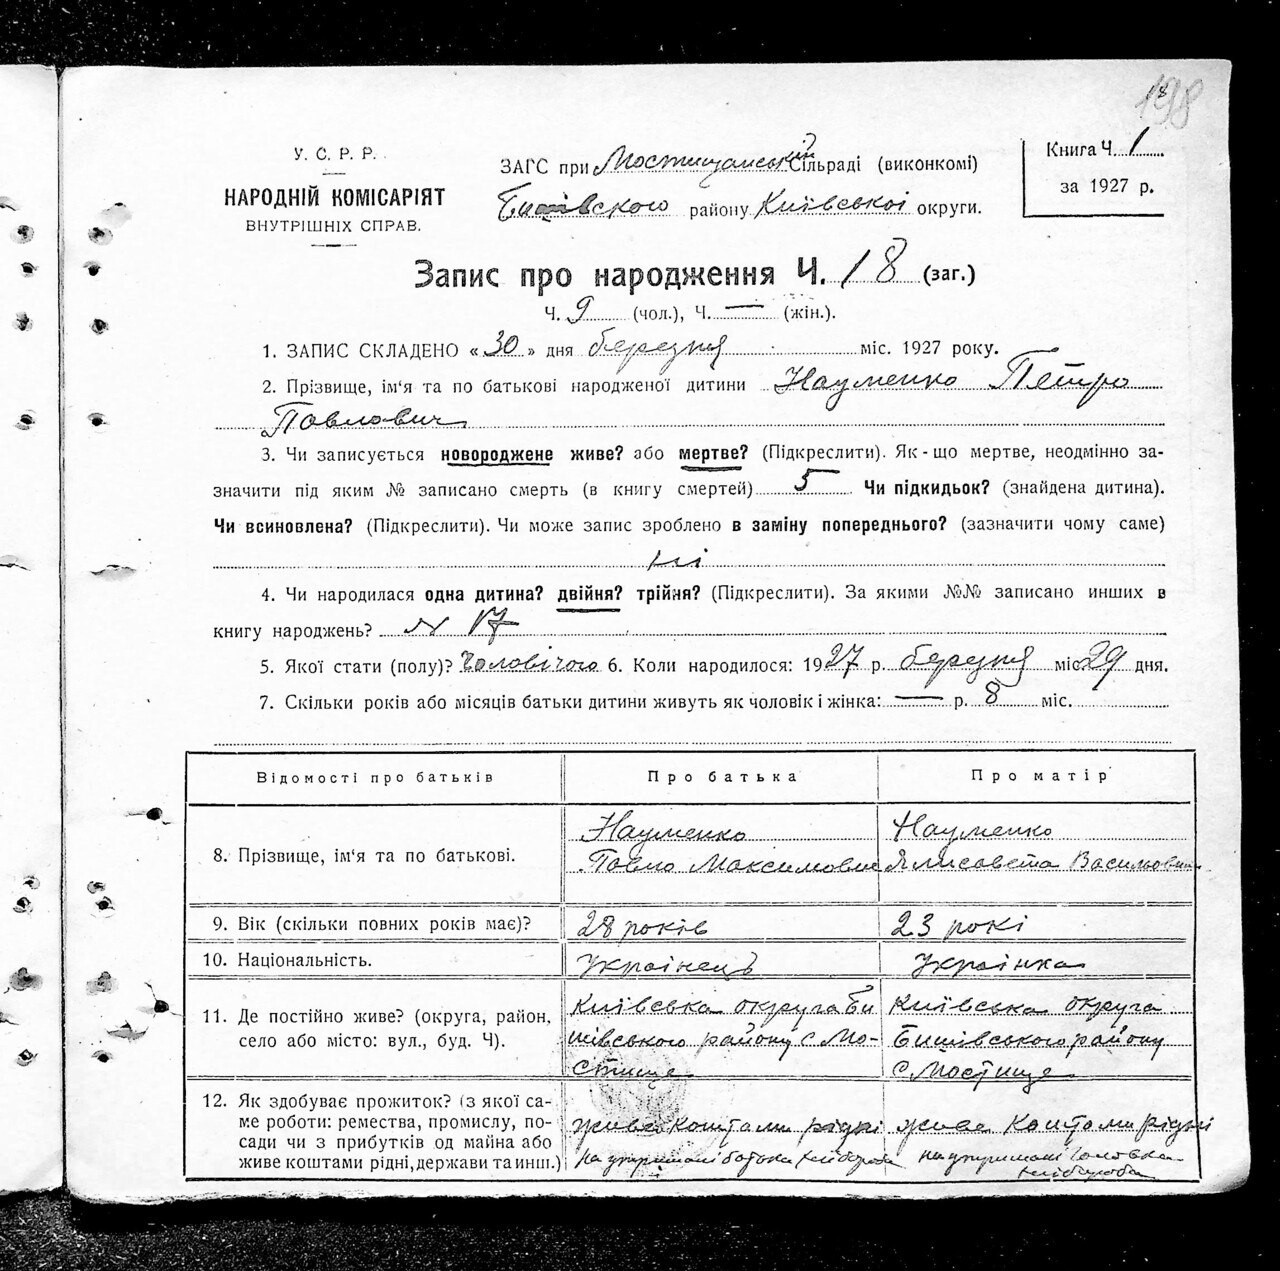 198
У. С. Р. Р.
НАРОДНІЙ КОМІСАРІЯТ
ВНУТРІШНІХ СПРАВ.
ЗАГС при Мостищанській Сільраді (виконкомі)
Бишівського району Київської округи.
Книга Ч. 1
за 1927 р.
Запис про народження Ч. 18 (заг.)
Ч. 9 (чол.), Ч. — (жін.).
1. ЗАПИС СКЛАДЕНО «30» дня березня міс. 1927 року.
2. Прізвище, ім'я та по батькові народженої дитини Науменко Петро
Павлович
3. Чи записується новороджене живе? або мертве? (Підкреслити). Як-що мертве, неодмінно за-
значити під яким № записано смерть (в книгу смертей) 5 Чи підкидьок? (знайдена дитина).
Чи всиновлена? (Підкреслити). Чи може запис зроблено в заміну попереднього? (зазначити чому саме)
ні
4. Чи народилася одна дитина? двійня? трійня? (Підкреслити). За якими №№ записано инших в
книгу народжень? № 17
5. Якої стати (полу)? Чоловічого 6. Коли народилося: 1927 р. березня міс 29 дня.
7. Скільки років або місяців батьки дитини живуть як чоловік і жінка: — р. 8 міс.
Відомості про батьків Про батька Про матір
8. Прізвище, ім'я та по батькові.
Науменко
Павло Максимович
Науменко
Ялисавета Васильовна
9. Вік (скільки повних років має)? 28 років 23 рокі
10. Національність. Українець Українка
11. Де постійно живе? (округа, район,
село або місто: вул., буд. Ч).
Київська округа Би
шівського району с Мо-
стище
Київська округа
Бишівського району
с Мостище
12. Як здобуває прожиток? (з якої са-
ме роботи: ремества, промислу, по-
сади чи з прибутків од майна або
живе коштами рідні, держави та инш.)
живе коштами рідні
на утримані батька хлібороба
живе коштами рідні
на утримані чоловіка
хлібороба